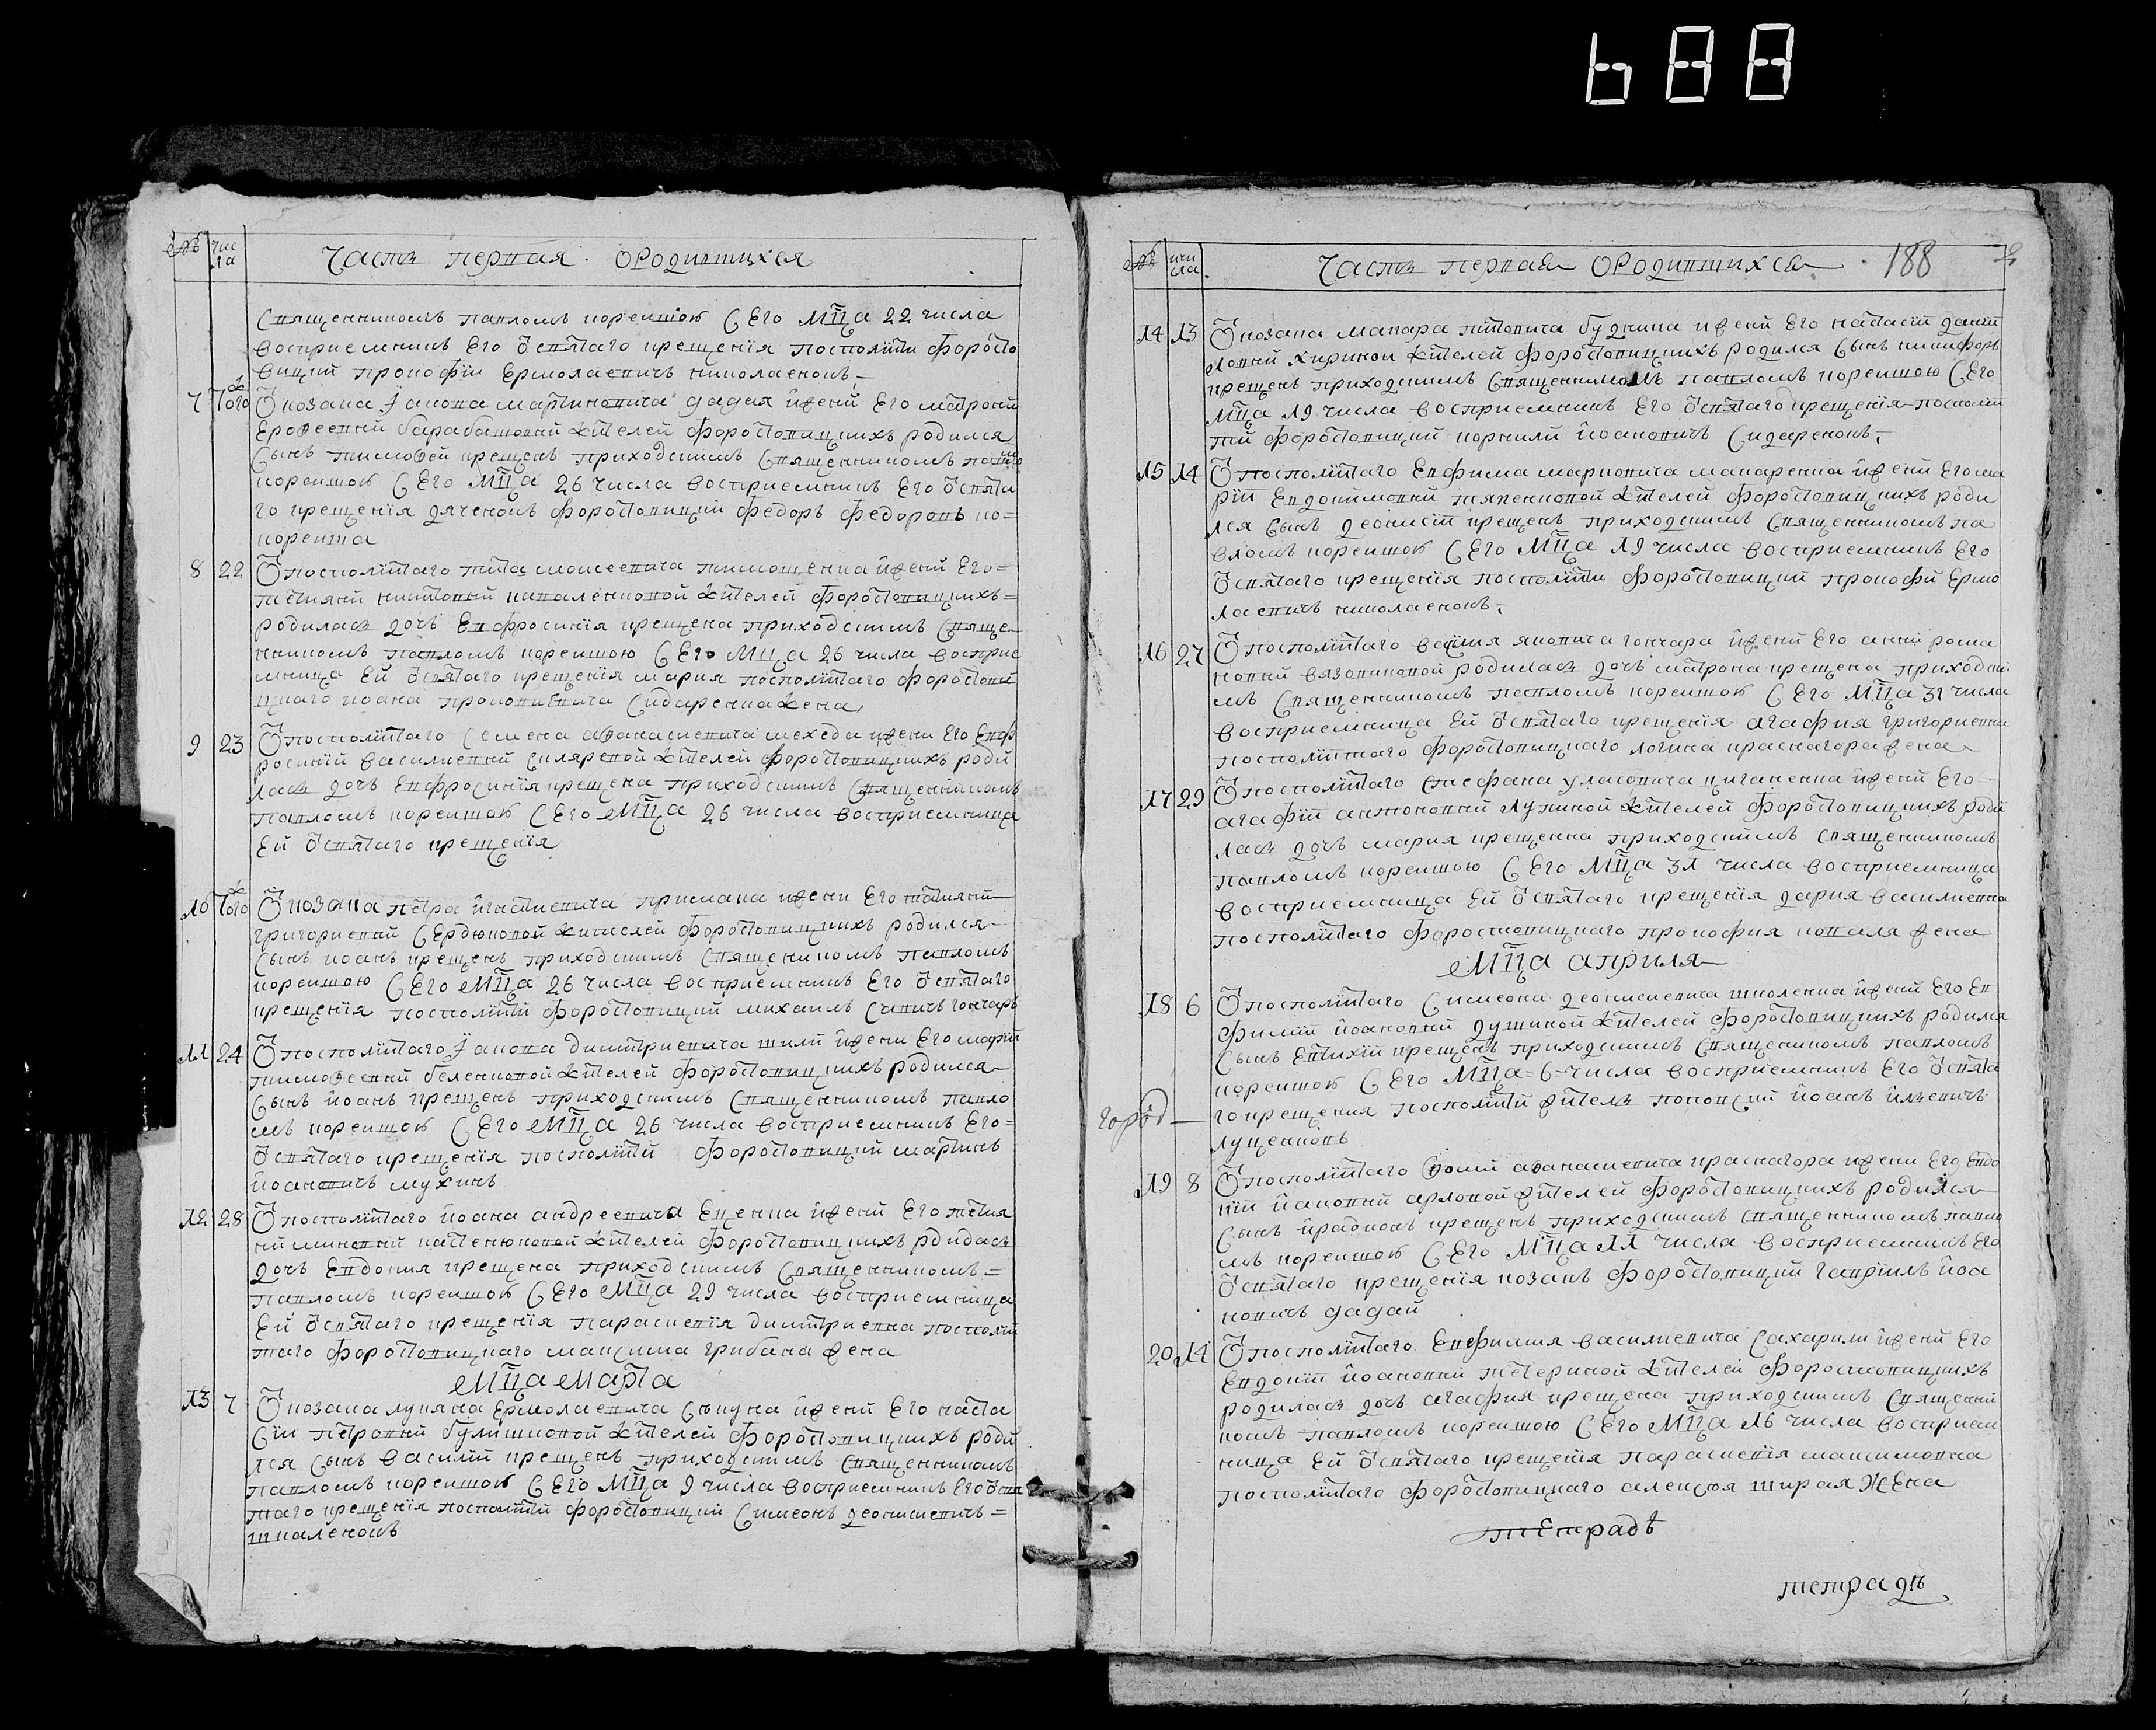 688
№ чис
ла
Часть первая о родившихся
священникомъ павломъ корсишою сего мца 22 числа
восприемникъ его ѿ святаго крещенія посполити форосто
вицкий прокофій ермолаевичъ николаенокъ
7 того ѿ козака якова мартиновича дадая и жени его матрони
ерофеевни барабашовни жителей форостовицкихъ родился
сынъ тимофей крещенъ приходскимъ священникомъ павло
корсишою сего мца 26 числа восприемникъ его ѿ свята
го крещенія дяченокъ форостовицкій федоръ федоровъ ко=
корсиша
8 22 ѿ посполитаго тита моисеевича тимощенка и жени его=
татияни никитовни ковалёнковой жителей форостовицкихъ=
родилась дочь евфросинія крещена приходскимъ свяще
нникомъ павломъ корсишою сего мца 26 числа восприе
мница ей ѿ святаго крещенія мария посполитаго форостови
цкаго иоана прокопиевича сидаренка жена
9 23 ѿ посполитаго семена афанасиевича шехеда и жени его евф
росиній василиевни скляревой жителей форостовицкихъ роди
лась дочь евфросинія крещена приходскимъ священникомъ
павломъ корсишою сего мца 26 числа восприемница
ей ѿ святаго крещенія
10 того ѿ козака петра игнатиевича примака и жени его татияни
григориевни сердюковой жителей форостовицкихъ родился
сынъ иоанъ крещенъ приходскимъ священикомъ павломъ
корсишою сего мца 26 числа восприемникъ его ѿ святаго
крещенія посполитій форостовицкий михаилъ савичъ гончаръ
11 24 ѿ посполитаго якова димитриевича шили и жени его марій
тимофеевни беленковой жителей форостовицкихъ родился
сынъ иоанъ крещенъ приходскимъ священникомъ павло
мъ корсишою сего мца 26 числа восприемникъ его=
ѿ святаго крещенія посполитій форостовицкий мартинъ
иоановичъ мухинъ
12 28 ѿ посполитаго иоана андреевича еценка и жени его татия
ни миновни катенюковой жителей форостовицкихъ рдидась
дочь евдокия крещена приходскимъ священникомъ=
павломъ корсишою сего мца 29 числа восприемница
ей ѿ святаго крещенія параскевія димитриевна посполи
таго форостовицкаго макцима грибана жена
мца марта
13 7 ѿ козака лукяна ермолаевича сѣкуна и жени его наста
сіи петровни булишковой жителей форостовицкихъ роди
лся сынъ василій крещенъ приходскимъ священникомъ
павломъ корсишою сего мца 9 числа восприемникъ его ѿ свя
таго крещенія посполитій форостовицкий симеонъ деонисиевичъ=
шкаленокъ
№ чи
сла
Часть первая о родившихся 188
14 13 ѿ козака макара титовича будника и жени его настасій дани
ловни хириной жителей форостовицкихъ родился сынъ никифоръ
крещенъ приходскимъ священникомъ павломъ корсишою сего
мца 19 числа восприемникъ его ѿ святаго крещения посполи
тий форостовицкий корнилий иоановичъ сидаренокъ
15 14 ѿ посполитаго евфима марковича макаренка и жени его ма
рій евдокимовни тяпенковой жителей форостовицкихъ роди
лся сынъ деонисій крещенъ приходскимъ священникомъ па
вломъ корсишою сего мца 19 числа восприемникъ его
ѿ святаго крещенія посполити форостовицкий прокофй ермо
лаевичъ николаенокъ
16 27 ѿ посполитаго василия яковича гончара и жени его анни рома
новни вязовиковой родилась дочь матрона крещена приходски
мъ священникомъ павломъ корсишою сего мца 31 числа
восприемница ей ѿ святаго крещения агафия григориевна
посполитаго форостовицкаго логина краснагора жена
17 29 ѿ посполитаго стефана уласовича циганенка и жени его
агафій антоновни лутиной жителей форостовицкихъ роди
лась дочь мария крещенна приходскимъ священникомъ
павломъ корсишою сего мца 31 числа восприемница
восприемница ей ѿ святаго крещенія дария василиевна
посполитаго форостовицкаго прокофия коваля жена
мца априля
18 6 ѿ посполитаго симеона деонисиевича школенка и жени его ев
фимій иоановни душиной жителей форостовицкихъ родился
сынъ евтихій крещенъ приходскимъ священикомъ павломъ
корсишою сего мца=6=числа восприемникъ его ѿ свята
город го крещения посполитий житель попопский иоанъ ильевичъ
луценковъ
19 8 ѿ посполитаго фоми афанасиевича краснагора и жени его евдо
кій иаковни орловой жителей форостовицкихъ родился
сынъ иродионъ крещенъ приходскимъ священникомъ павло
мъ корсишою сего мца 11 числа восприемникъ его
ѿ святаго крещенія козакъ форостовицкий гавріилъ иоа
новичъ дадай
20 14 ѿ посполитаго евфимия василиевича сахарили и жени его
евдокій иоановни тетериной жителей форостовицкихъ
родилась дочь агафия крещена приходскимъ священи
комъ павломъ корсишою сего мца 16 числа восприем
ница ей ѿ святаго крещенія параскевія максимовна
посполитаго форостовицкаго алексея ширая жена
тетрадь
тетрадь